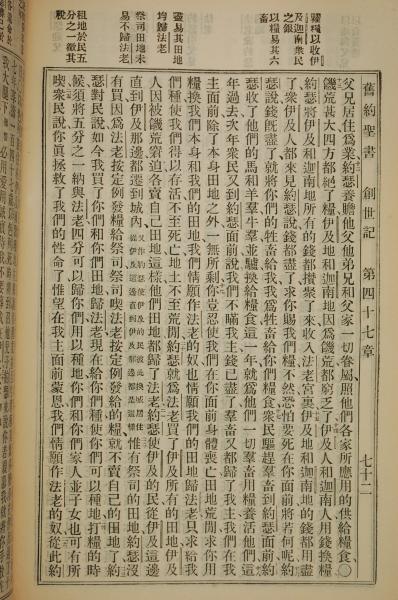 舊約聖書 創世記 第四十七章 七十二
糶糧以收伊
及迦南衆民
之銀
以糧易其六
畜
盡易其田地
均歸法老
祭司田地未
易不歸法老
租地於民五
分之一徵其
稅
父兄居住爲業約瑟養贍他父他弟兄和父家一切眷屬照他們各家所應用的供給糧食〇
饑荒甚大四方都絕了糧伊及地和迦南地因爲饑荒都窮乏了伊及人和迦南人用錢換糧
約瑟將伊及和迦南地所有的錢都攅聚了來收入法老宮裏伊及地和迦南地的錢都用盡
了衆伊及人都來見約瑟說錢都盡了求你賜我們糧不然恐怕要死在你面前將若何呢約
瑟說錢旣盡了就將你們的牲畜給我我爲牲畜給你們糧食衆民驅趕羣畜到約瑟面前約
瑟收了他們的馬和羊羣牛羣並驢換給糧食這一年就爲他們一切羣畜用糧養活他們這
年過去次年衆民又到約瑟面前說我們不瞞我主錢已盡了羣畜又都歸了我主我們在我
主面前除了本身田地之外一無所剩你豈忍使我們在你面前身體喪亡田地荒閒求你用
糧換我們本身和我們的田地我們情願作法老的奴也情願我們的田地歸法老只求給我
們種使我們得以存活不至死亡地土不至荒閒約瑟就爲法老買了伊及所有的田地伊及
人因被饑荒窘迫各賣自己田地這樣他們田地都歸了法老約瑟使伊及的民從伊及這邊
直到伊及那邊都遷到城內惟有祭司的田地約瑟沒
有買因爲法老按定例發糧給祭司祭司喫法老按定例發給的糧就不賣自己的田地了約
瑟對民說如今我買了你們和你們田地歸法老現在給你們種使你們可以種地打糧的時
候須將五分之一納與法老四分可以歸你們用以種地你們和你們家人並子女也有所
喫衆民說你眞拯救了我們的性命了惟望在我主面前蒙恩我們情願作法老的奴從此約